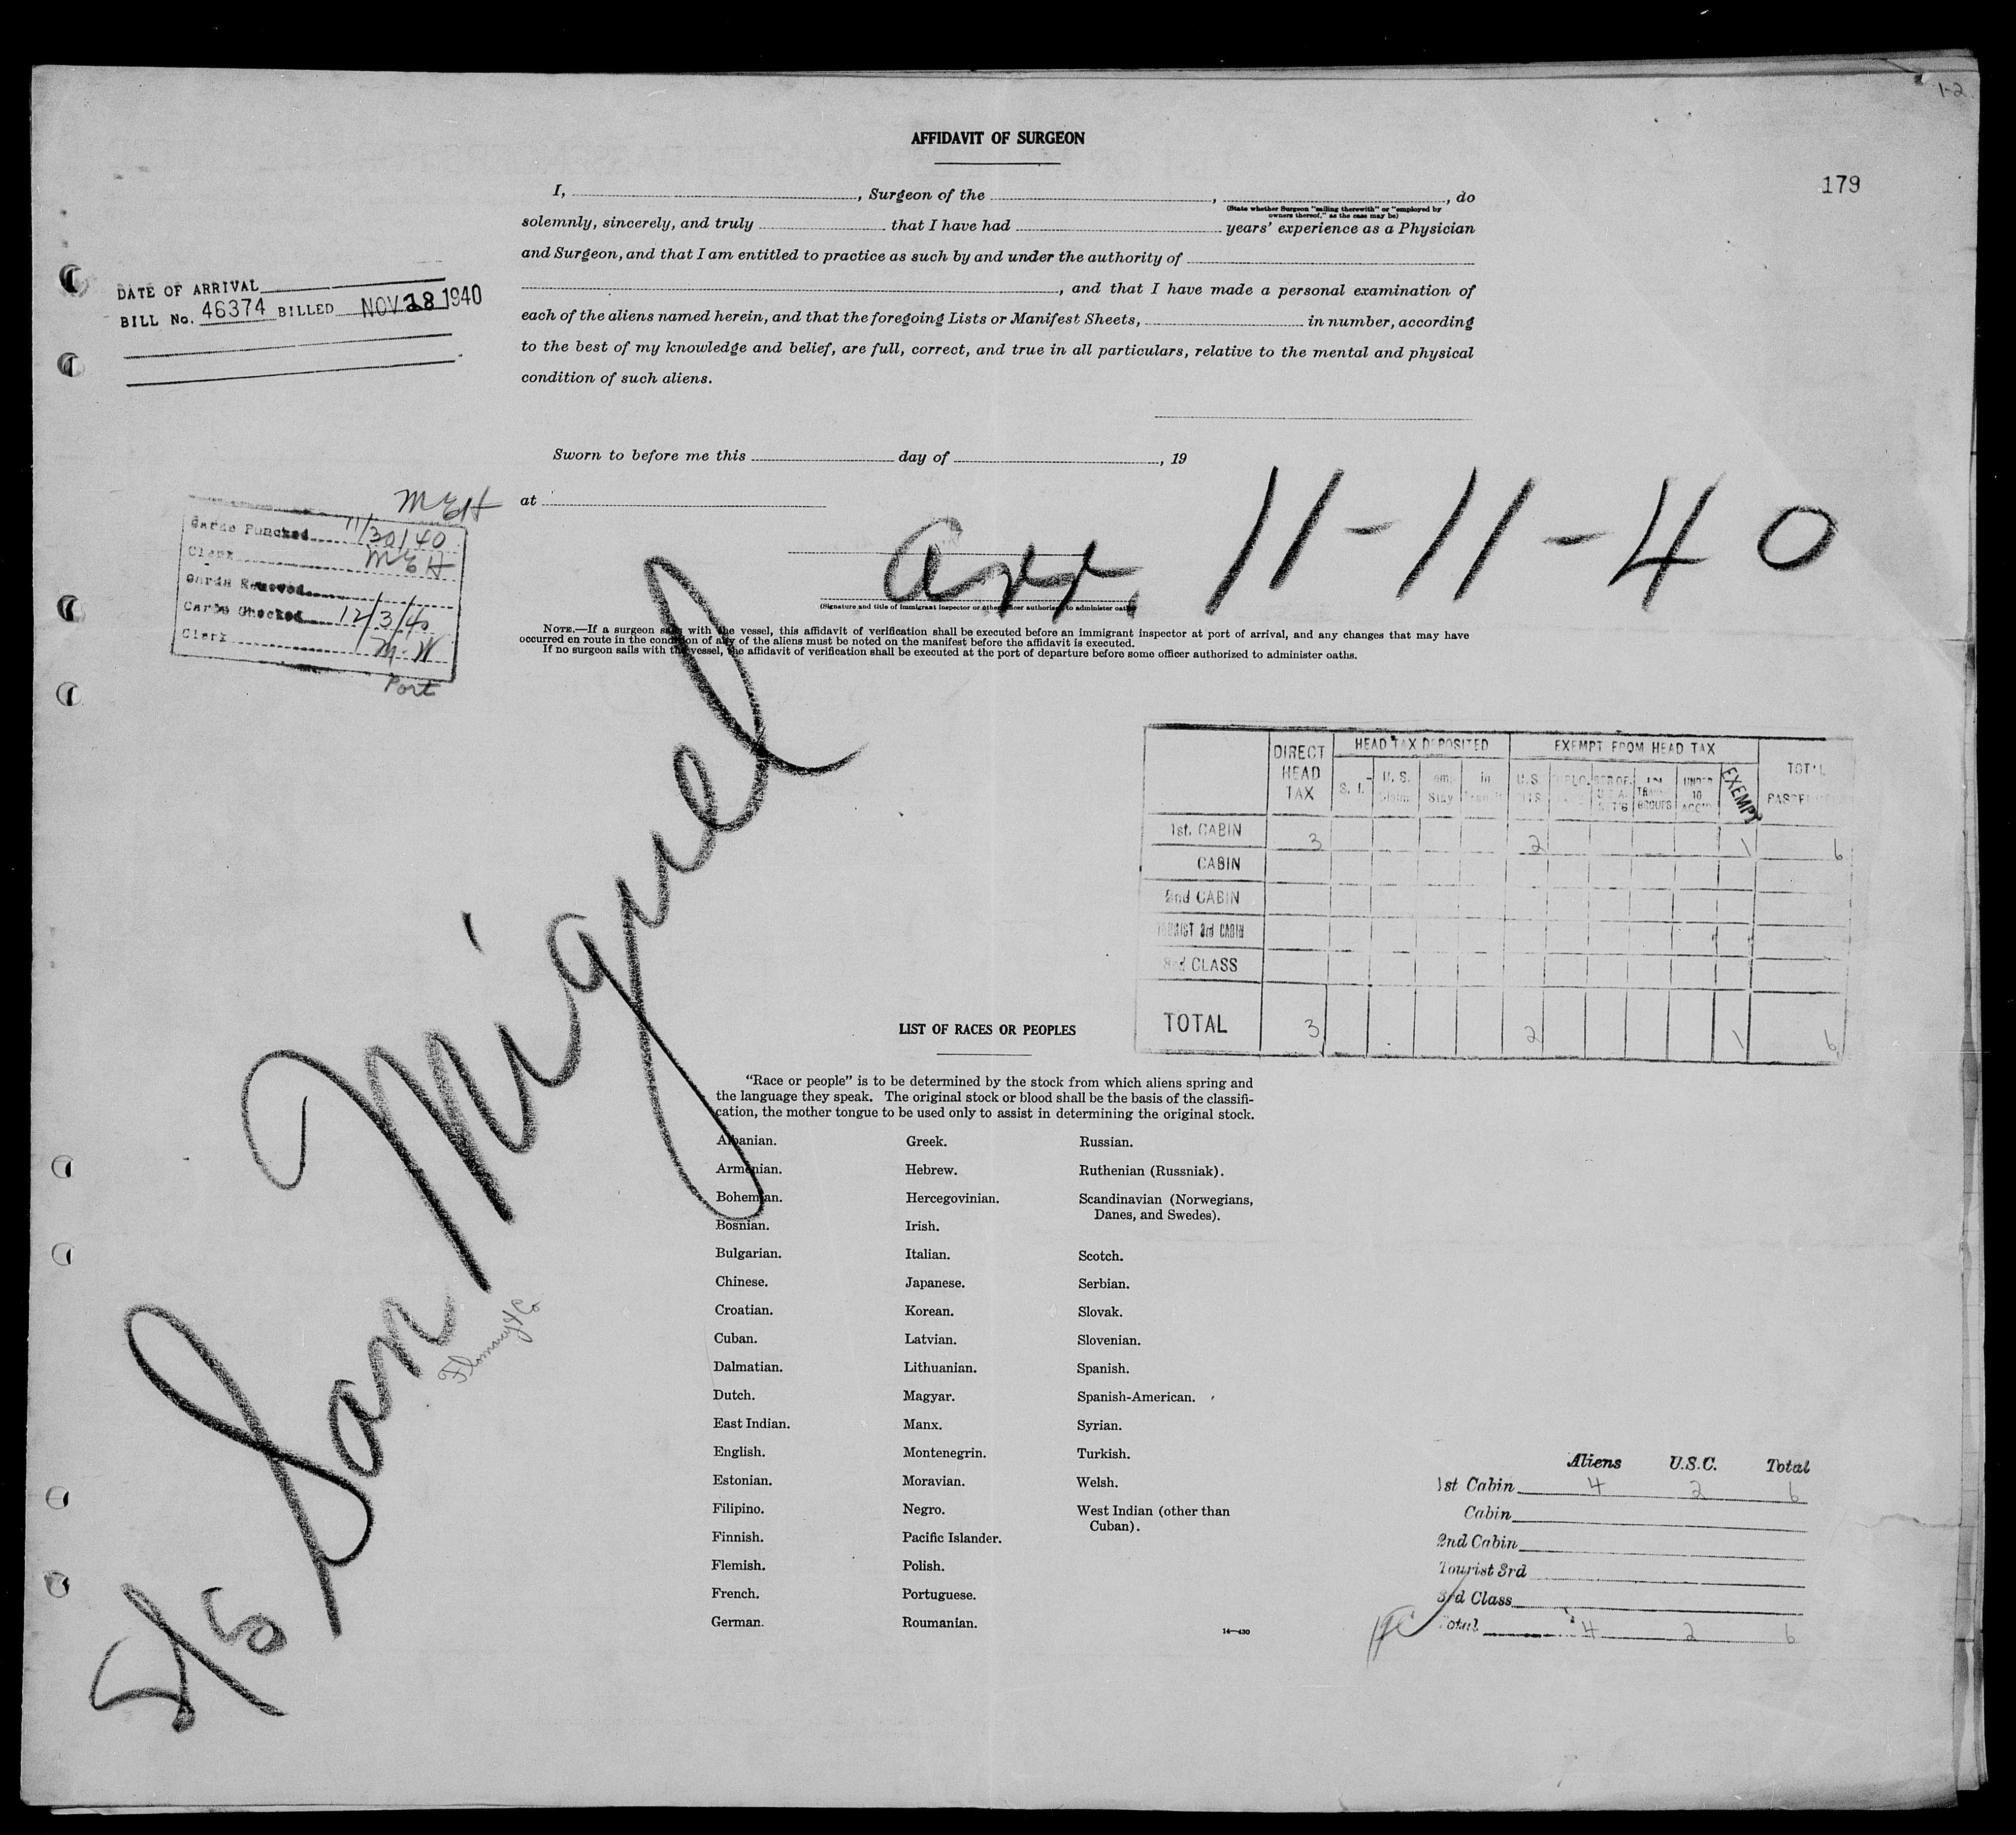 1-2
179
AFFIDAVIT OF SURGEON
I, , Surgeon of the , , do
(State whether Surgeon "sailing therewith" or "employed by
owners thereof," as the case may be)
solemnly, sincerely, and truly that I have had years' experience as a Physician
and Surgeon, and that I am entitled to practice as such by and under the authority of
, and that I have made a personal examination of
each of the aliens named herein, and that the foregoing Lists or Manifest Sheets, in number, according
to the best of my knowledge and belief, are full, correct, and true in all particulars, relative to the mental and physical
condition of such aliens.
DATE OF ARRIVAL
BILL No. 46374 BILLED NOV 28 1940
Sworn to before me this day of , 19
at
MEH
Cards Punched 11/30/40
Clerk MEH
Cards Removed
Cards Checked 12/3/40
Clerk M-W
Port
Arr. 11-11-40
(Signature and title of immigrant inspector or other officer authorized to administer oaths)
NOTE.—If a surgeon sails with the vessel, this affidavit of verification shall be executed before an immigrant inspector at port of arrival, and any changes that may have
occurred en route in the condition of any of the aliens must be noted on the manifest before the affidavit is executed.
If no surgeon sails with the vessel, the affidavit of verification shall be executed at the port of departure before some officer authorized to administer oaths.
S/S San Miguel
DIRECT HEAD TAX HEAD TAX DEPOSITED EXEMPT FROM HEAD TAX TOTAL
S. I. U. S. Stay in U.S. TRANS GROUPS UNDER 16 EXEMPT
1st. CABIN 3 2 1 6
CABIN
2nd CABIN
TOURIST 3rd CABIN
3rd CLASS
TOTAL 3 2 1 6
LIST OF RACES OR PEOPLES
"Race or people" is to be determined by the stock from which aliens spring and
the language they speak. The original stock or blood shall be the basis of the classifi-
cation, the mother tongue to be used only to assist in determining the original stock.
Albanian.
Armenian.
Bohemian.
Bosnian.
Bulgarian.
Chinese.
Croatian.
Cuban.
Dalmatian.
Dutch.
East Indian.
English.
Estonian.
Filipino.
Finnish.
Flemish.
French.
German.
Greek.
Hebrew.
Hercegovinian.
Irish.
Italian.
Japanese.
Korean.
Latvian.
Lithuanian.
Magyar.
Manx.
Montenegrin.
Moravian.
Negro.
Pacific Islander.
Polish.
Portuguese.
Roumanian.
Russian.
Ruthenian (Russniak).
Scandinavian (Norwegians,
Danes, and Swedes).
Scotch.
Serbian.
Slovak.
Slovenian.
Spanish.
Spanish-American.
Syrian.
Turkish.
Welsh.
West Indian (other than
Cuban).
14—430
Aliens U.S.C. Total
1st Cabin 4 2 6
Cabin
2nd Cabin
Tourist 3rd
3rd Class
Total 4 2 6